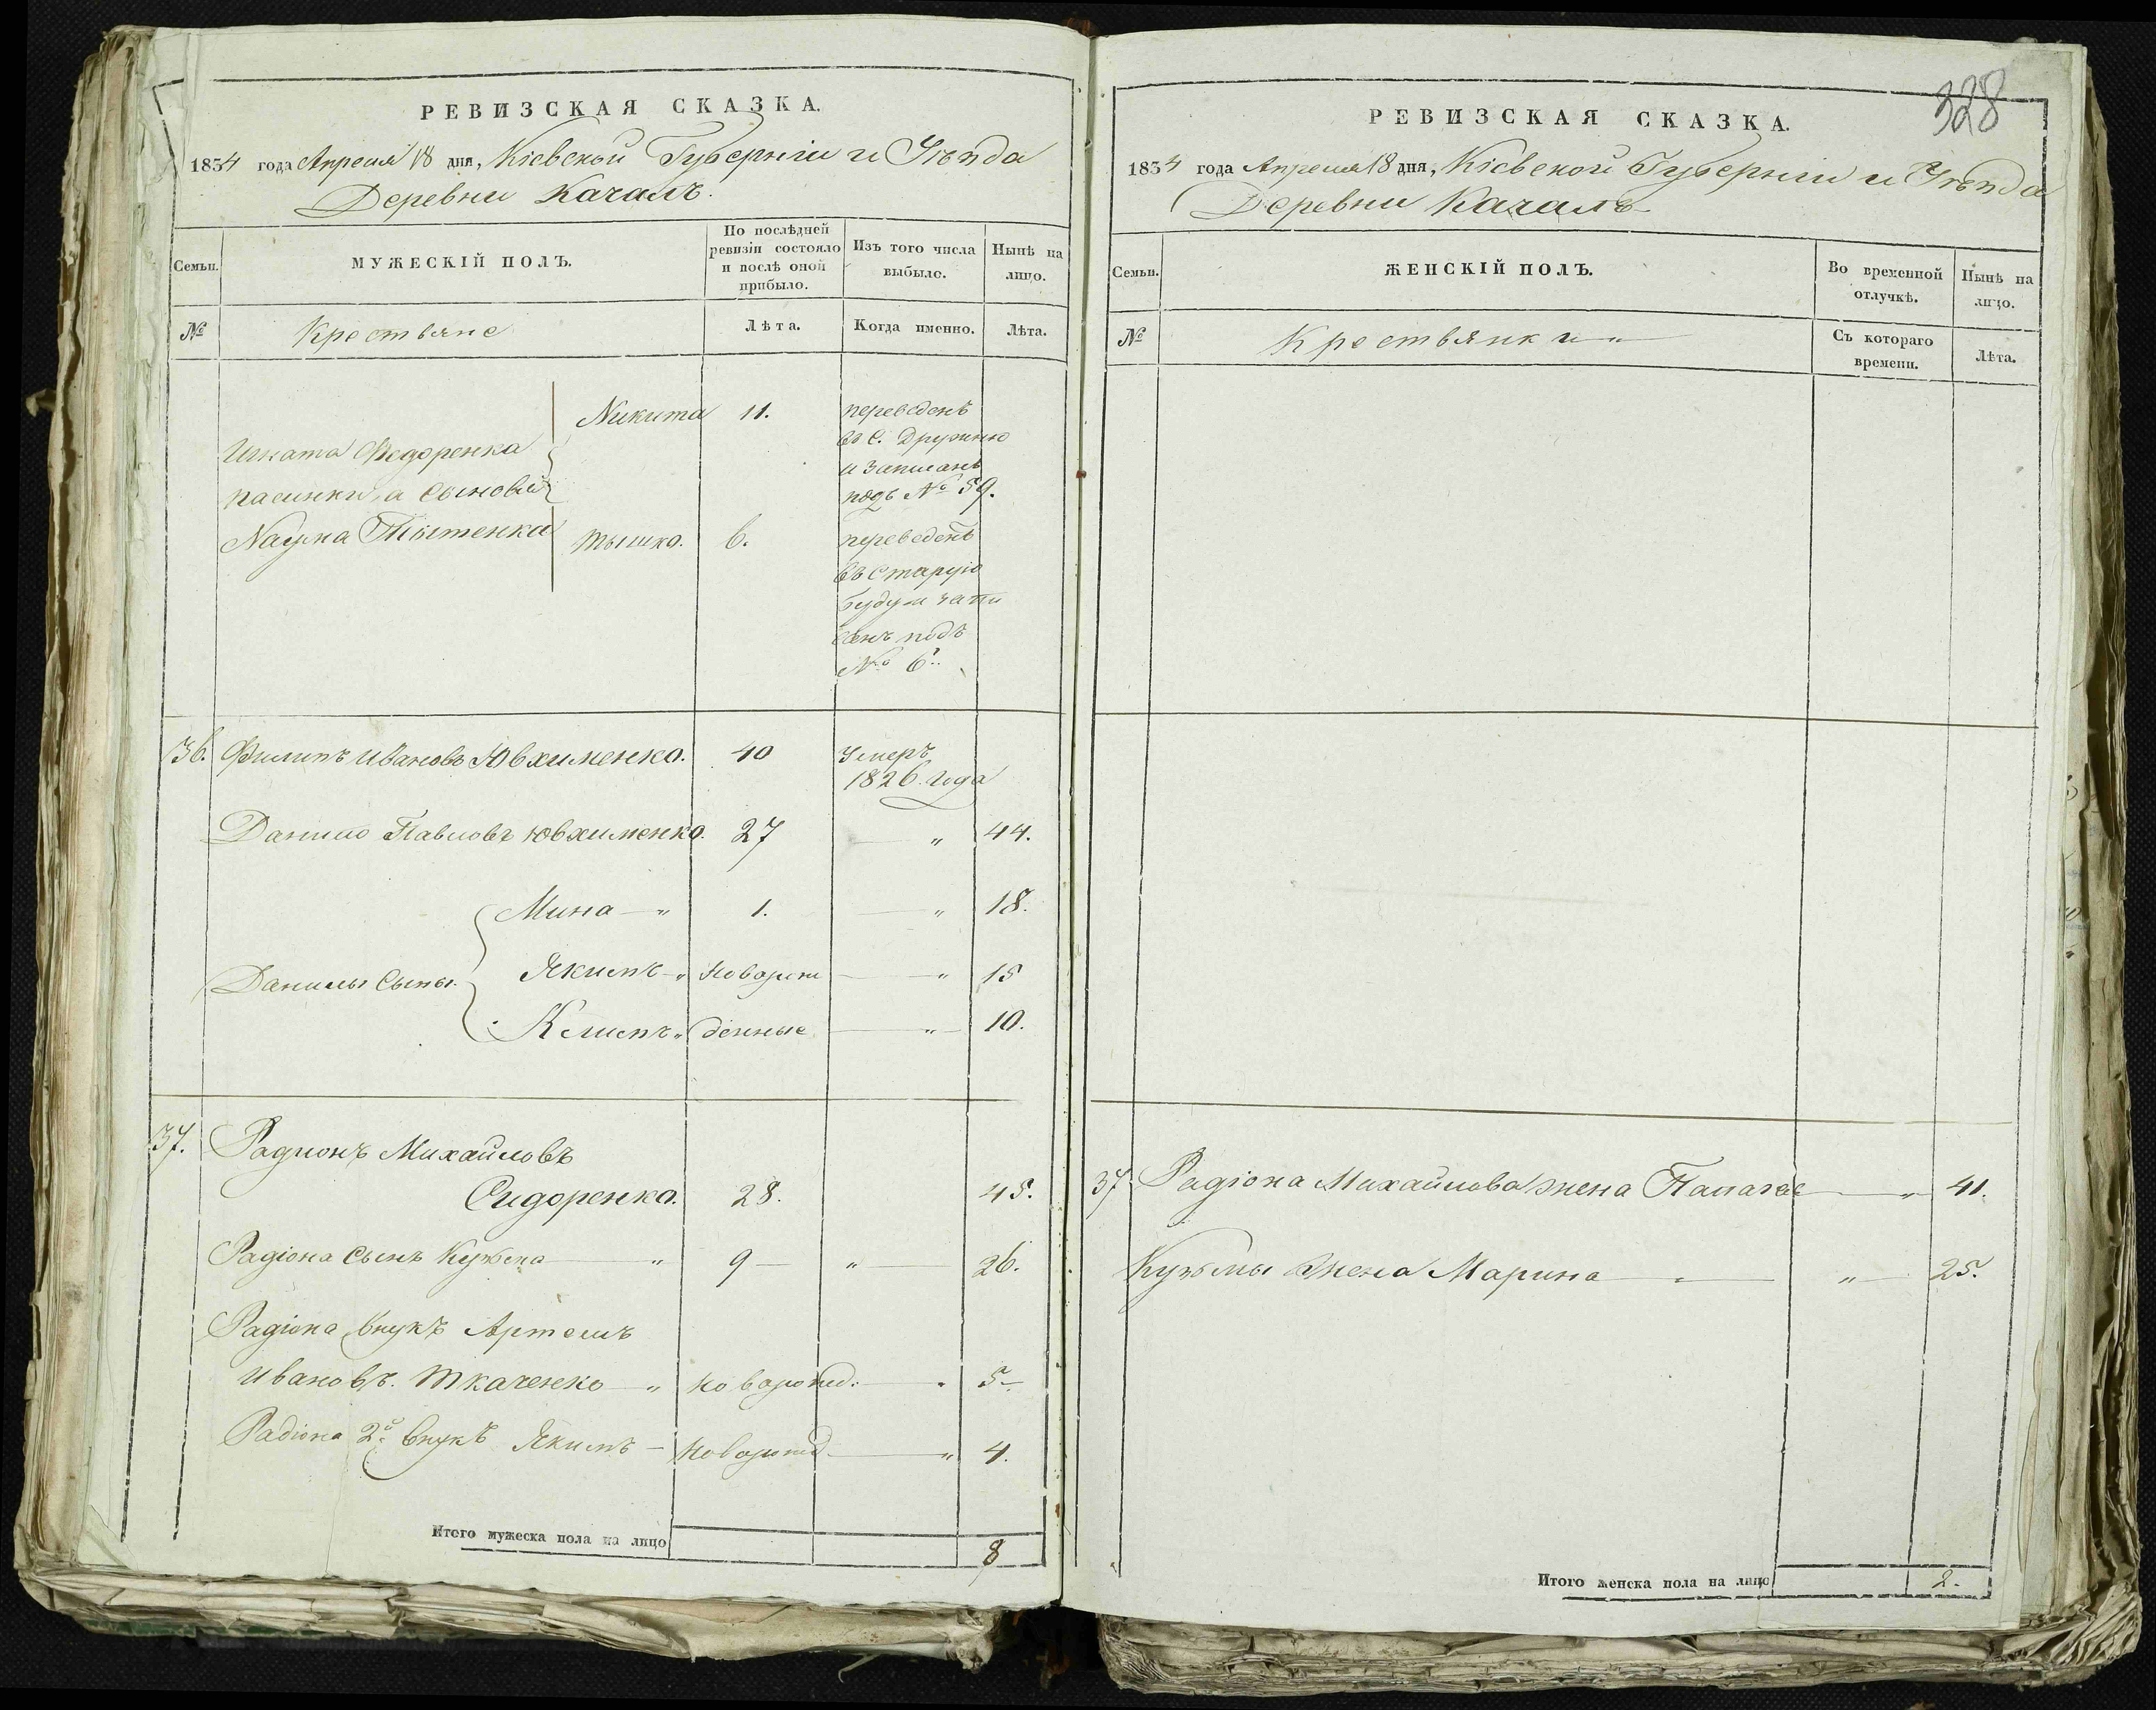 РЕВИЗСКАЯ СКАЗКА.
1834 года Апреля 18 дня, Кіевской Губерніи и Уѣзда
Деревни Качалъ.
Семьи.
МУЖЕСКІЙ ПОЛЪ.
По послѣдней
ревизіи состояло
и послѣ оной
прибыло.
Изъ того числа
выбыло.
Нынѣ на
лицо.
№
Крестьяне
Лѣта.
Когда именно.
Лѣта.
Игната Федоренка
пасинки, а сыновья
Наума
Никита 11.
переведенъ
въ с. Дружню
и записанъ
подъ № 59.
Мышко. 6.
переведенъ
въ Старую
Буду и запи
санъ подъ
№ 6
36. Филипъ Ивановъ Ювхименко. 40 Умеръ
1826. года
Данило Павловъ Ювхименко. 27 — " 44.
Мина — " 1. — " 18.
Данилы Сыны.
Якимъ — " Новорож — " 15
Климъ " денные — " 10.
37. Радионъ Михайловъ
Сидоренко. 28. 45.
Радіона сынъ Кузьма — " 9 — " — 26.
Радіона внукъ Артемъ
Ивановъ. Ткаченко — " новорожд. — 5
Радіона 2й внукъ Якимъ — Новорожд — " 4.
Итого мужеска пола на лицо 8
328
РЕВИЗСКАЯ СКАЗКА.
1834 года Апреля 18 дня, Кіевской Губерніи и Уѣзда
Деревни Качалъ
Семьи.
ЖЕНСКІЙ ПОЛЪ.
Во временной
отлучкѣ.
Нынѣ на
лицо.
№
Крестьянки — "
Съ котораго
времени.
Лѣта.
37 Радіона Михайлова жена — " 41.
Кузьмы жена Марина — " — 25.
Итого женска пола на лицо 2.